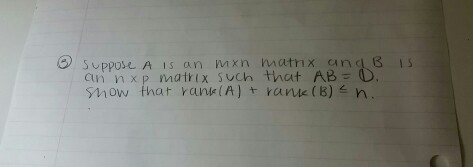 ③ Suppose A is an mxn matrix and B is
an nxp matrix such that AB = O.
Show that rank(A) + rank(B) ≤ n.